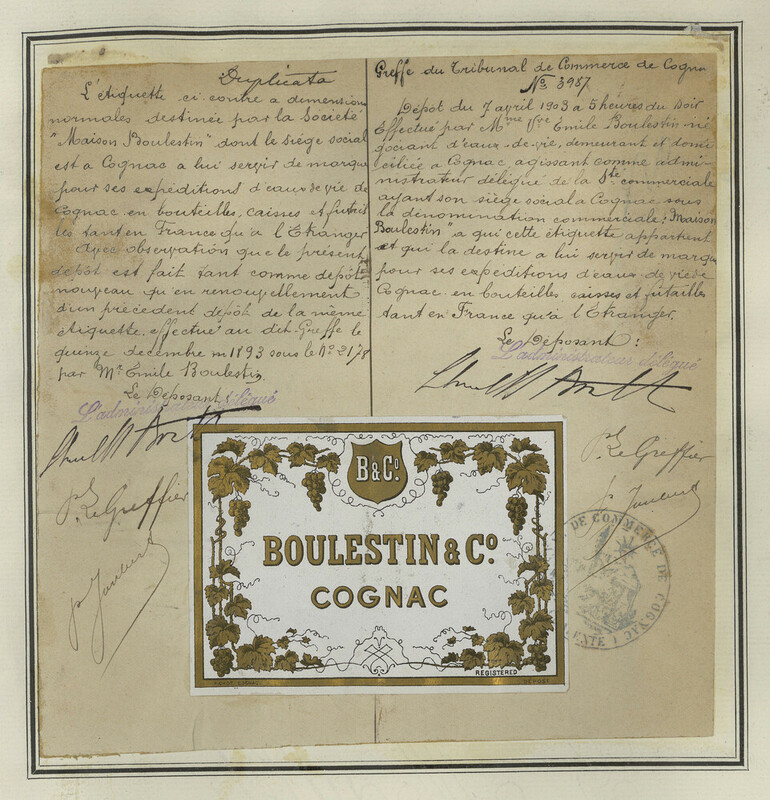 Duplicata
L'étiquette ci contre a dimensions
normales destinée par la Société
"Maison Boulestin" dont le siège social
est a Cognac a lui servir de marque
pour ses expéditions d'eaux de vie de
Cognac en bouteilles, caisses et futail
les tant en France qu'à l'Etranger
avec observation que le présent
dépôt est fait tant comme dépôt
nouveau qu'en renouvellement
d'un précédent dépôt de la même
étiquette effectué au dit Greffe le
quinze décembre 1893 sous le No 2178
par Mr Emile Boulestin
Le Déposant:
L'administrateur délégué
pr Le Greffier
Greffe du Tribunal de Commerce de Cogna
No 3987
Dépôt du 7 avril 1903 a 5 heures du soir
Effectué par Mme Vve Emile Boulestin né
gociant d'eaux-de-vie, demeurant et domi
ciliée a Cognac, agissant comme admi
nistrateur délégué de la Sté commerciale
ayant son siège social a Cognac sous
la dénomination commerciale: "Maison
Boulestin" a qui cette étiquette appartient
et qui la destine a lui servir de marque
pour ses expéditions d'eaux-de-vie de
Cognac en bouteilles, caisses et futailles
tant en France qu'à l'Etranger.
Le Déposant:
L'administrateur délégué
pr Le Greffier
B & Co
BOULESTIN & Co.
COGNAC
REGISTERED
DÉPOSÉ
DE COMMERCE DE COGNAC